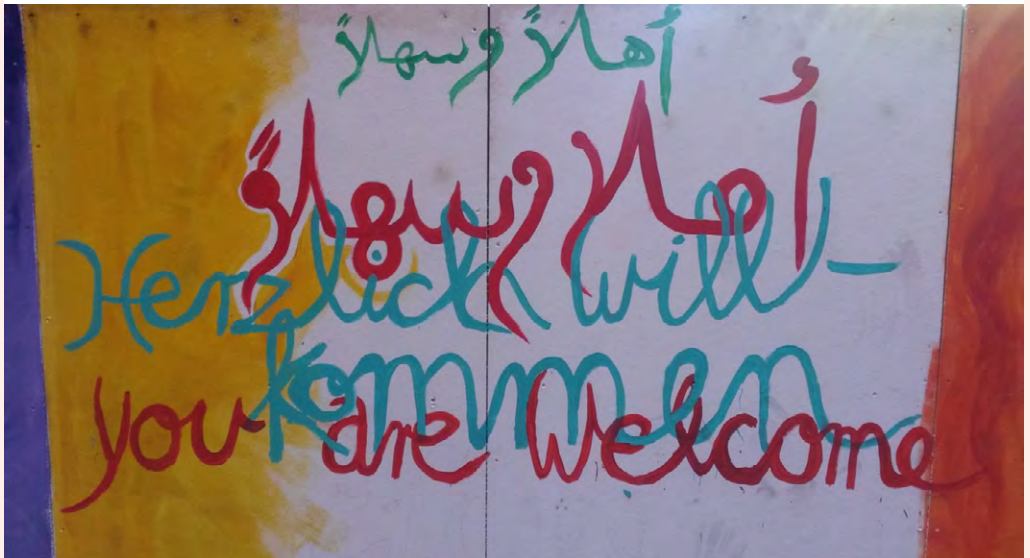 أهلاً وسهلاً
أهلاً وسهلاً
Herzlich will-
kommen
you are welcome